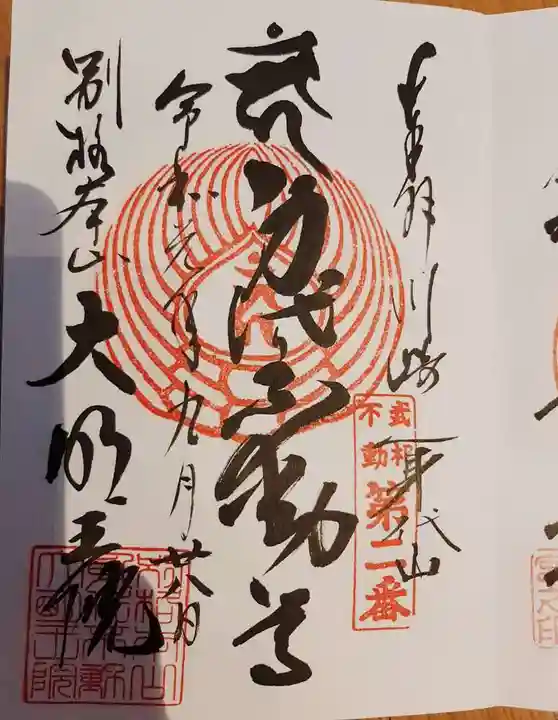 奉拝 川崎 身代山
武相
不動
第二番
身代不動尊
令和元年九月廿八日
別格本山 大明王院